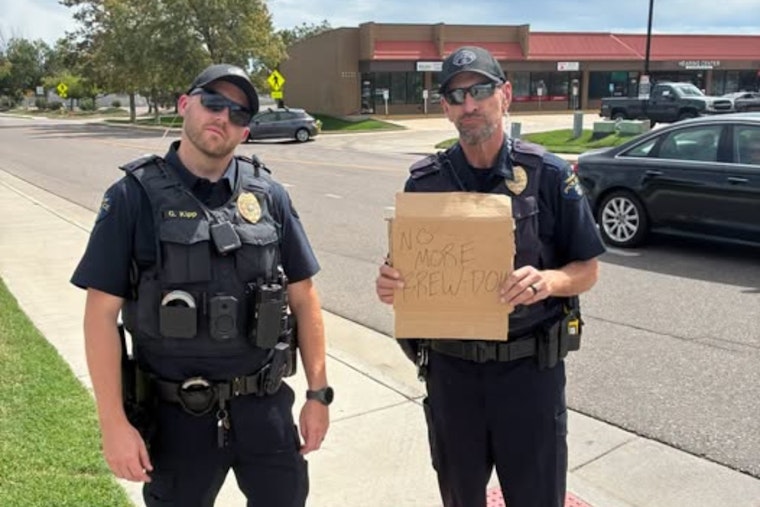 G. Kipp
NO
MORE
FREW-DOM
HEARING CENTER